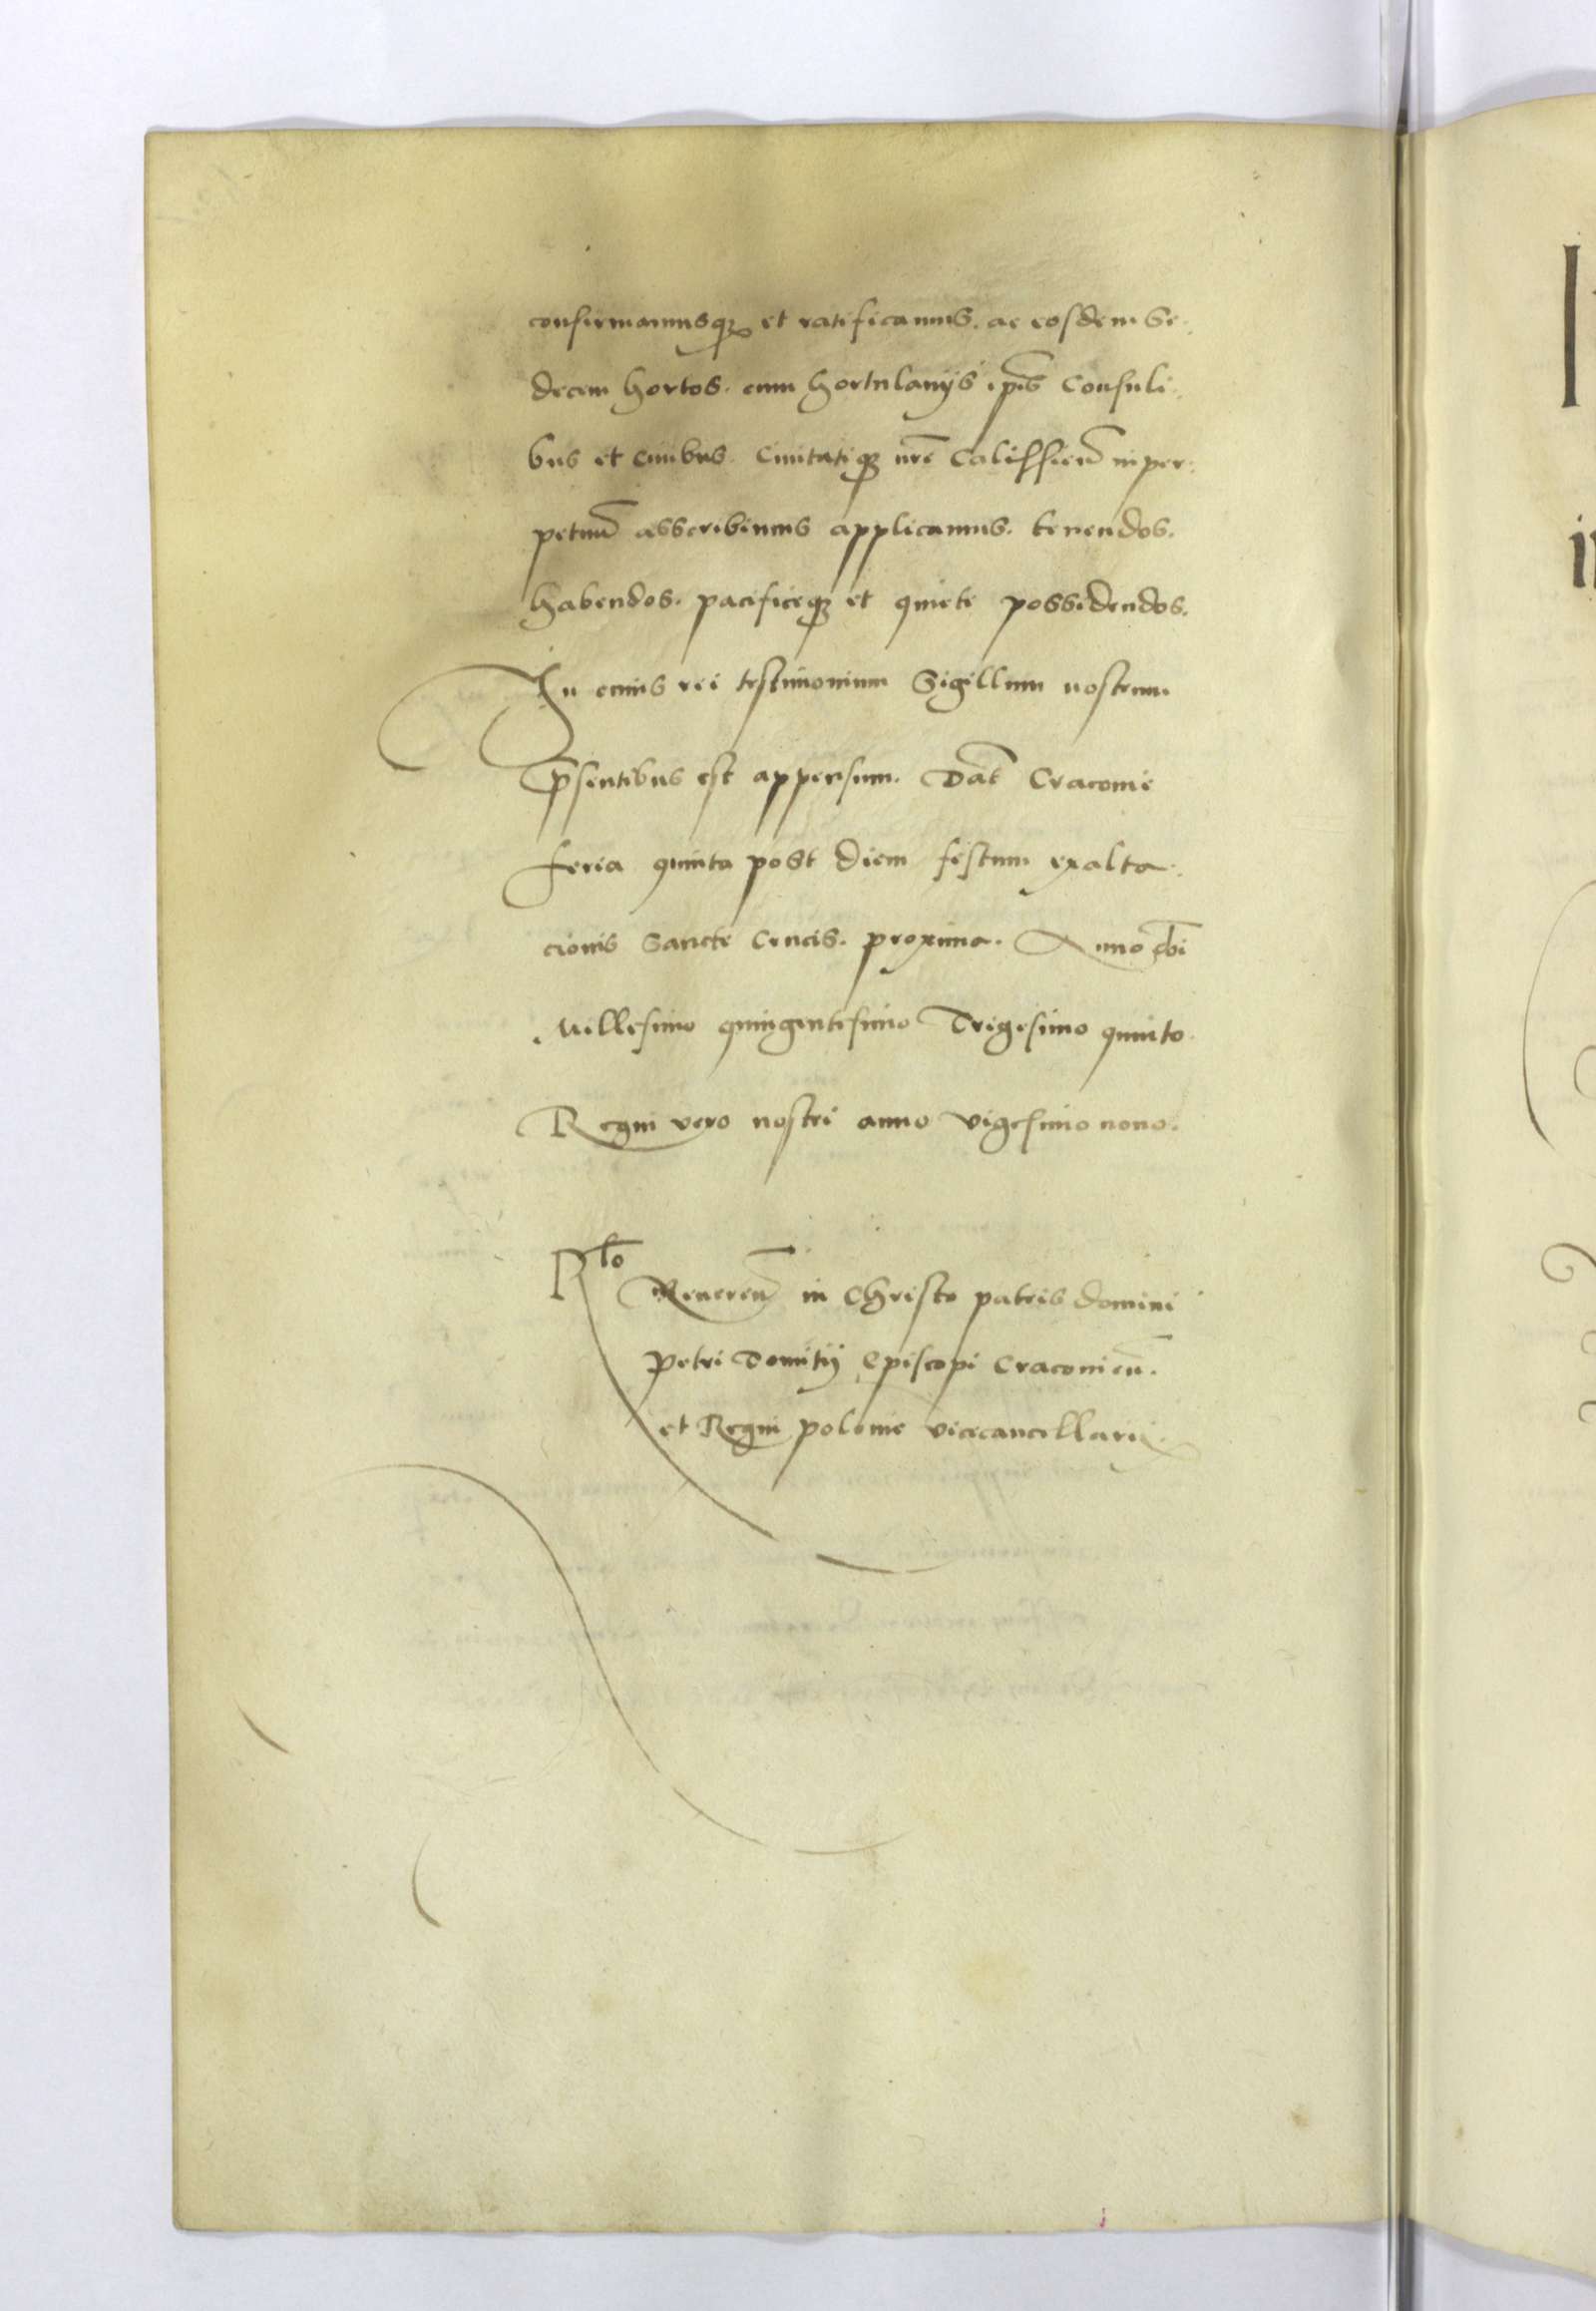 confirmamusq́ꝫ et ratificamus. ac eosdem Se-
decem hortos. cum hortulanijs ip̄is Consuli-
bus et ciuibus. Ciuitatiq́ꝫ nr̄e Calissien̄ in per-
petuū asscribimus applicamus. tenendos.
habendos. pacificeq́ꝫ et quiete possidendos.
In cuius rei testimonium Sigillum nostrum
p̄sentibus est appensum. Dat̄ Cracouie
feria quinta post diem festum exalta-
cionis Sancte Crucis. proxima. Anno dn̄i
Millesimo quingentesimo Trigesimo quinto.
Regni vero nostri anno vigesimo nono.
Rlō
Reueren̄ in Christo patris domini
Petri Tomitij Episcopi Cracouien̄.
et Regni polonie vicecancellarij.